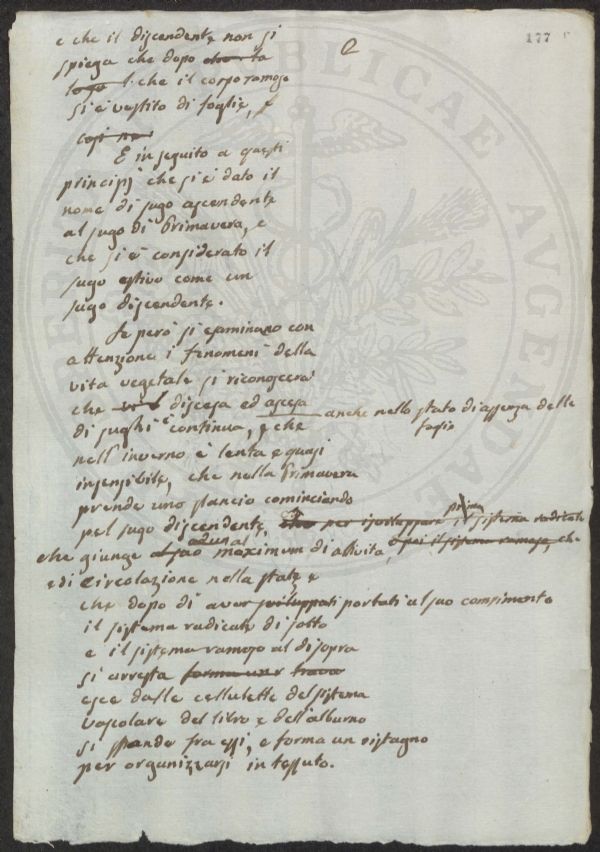 177
2
e che il discendente non si
spiega che dopo che la
foga l. che il corpo ramoso
si è vestito di foglie, e
così ne
E in seguito a questi
principj che si è dato il
nome di sugo ascendente
al sugo di Primavera, e
che si è considerato il
sugo estivo come un
sugo discendente.
Se però si esaminano con
attenzione i fenomeni della
vita vegetale si riconoscerà
che discesa ed ascesa anche nello stato di assenza delle
foglie
di sughi è continua, e che
nell'inverno è lenta e quasi
insensibile, che nella Primavera
prende uno slancio cominciando
prima
pel sugo discendente, per isviluppare il sistema radicale
che giunge ad un maximum di attività, e poi il sistema ramoso, che
e di Circolazione nella state e
che dopo di aver sviluppati portati al suo compimento
il sistema radicale di sotto
e il sistema ramoso al disopra
si arresta forma una
esce dalle cellulette del sistema
vascolare del libro e dell'alburno
si spande fra essi, e forma un ristagno
per organizzarsi in tessuto.